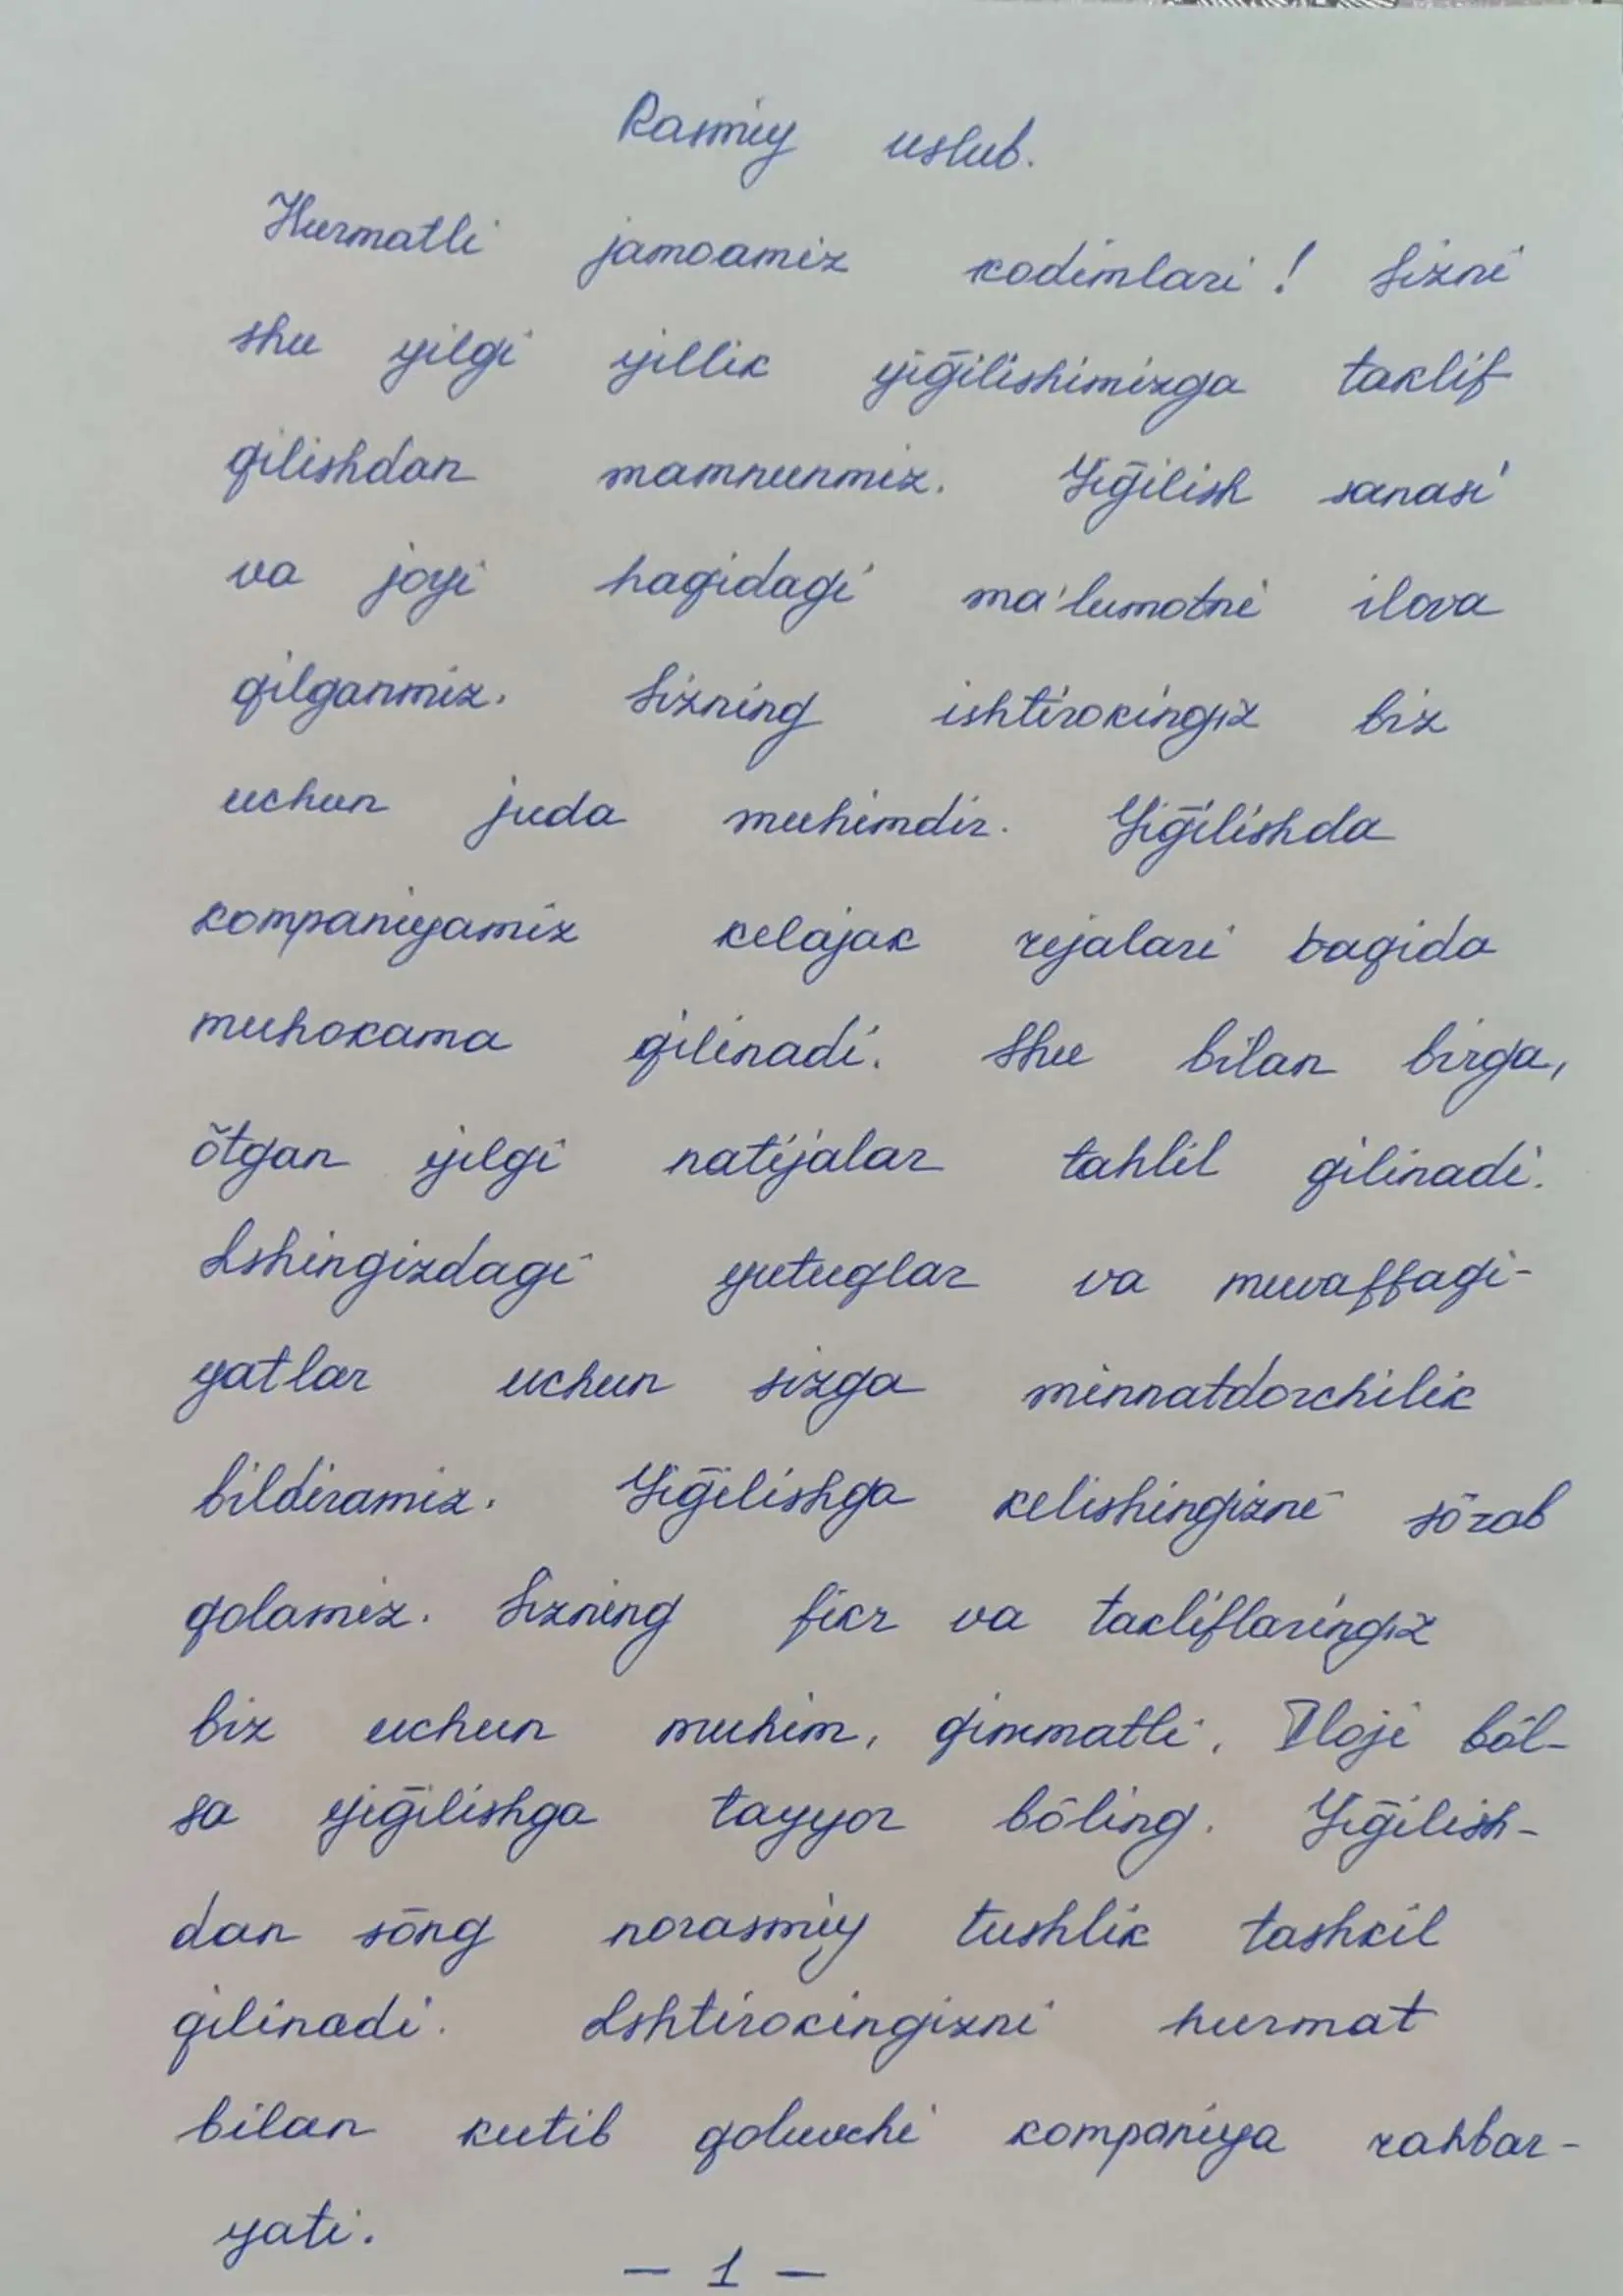 Rasmiy uslub.
Hurmatli jamoamiz xodimlari! Sizni
shu yilgi yillik yiğilishimizga taklif
qilishdan mamnunmiz. Yiğilish sanasi
va joyi haqidagi ma'lumotni ilova
qilganmiz. Sizning ishtirokingiz biz
uchun juda muhimdir. Yiğilishda
kompaniyamiz kelajak rejalari haqida
muhokama qilinadi. Shu bilan birga,
õtgan yilgi natijalar tahlil qilinadi.
Ishingizdagi yutuqlar va muvaffaqi-
yatlar uchun sizga minnatdorchilik
bildiramiz. Yiğilishga kelishingizni sõrab
qolamiz. Sizning fikr va takliflaringiz
biz uchun muhim, qimmatli. Iloji bõl-
sa yiğilishga tayyor bõling. Yiğilish-
dan sõng norasmiy tushlik tashkil
qilinadi. Ishtirokingizni hurmat
bilan kutib qoluvchi kompaniya rahbar-
yati.
- 1 -